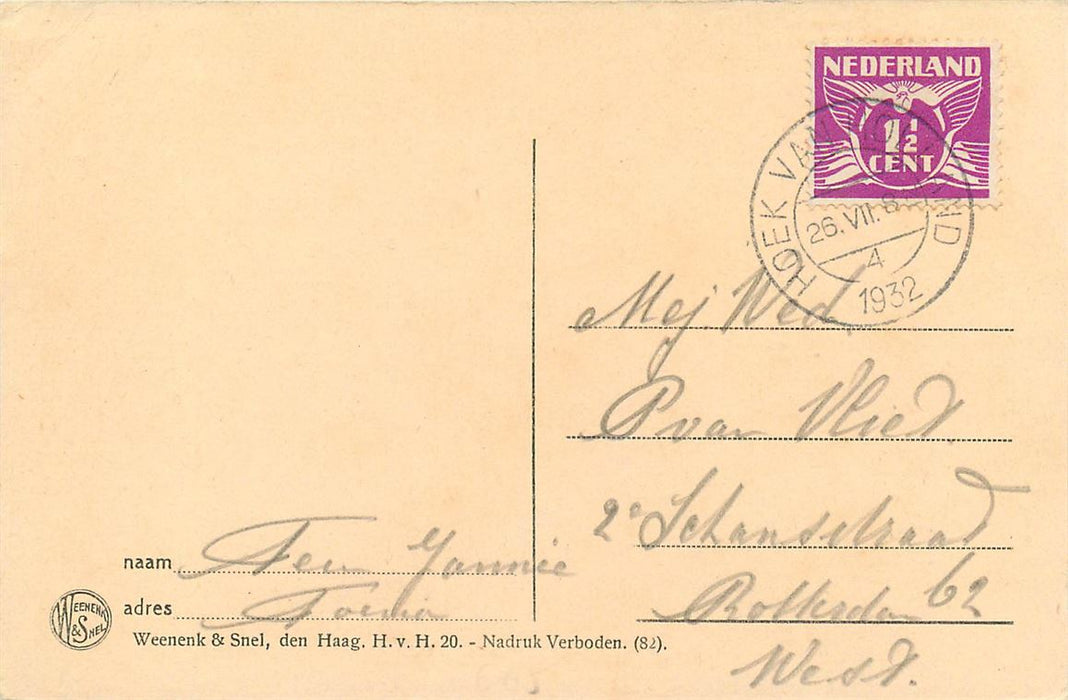 NEDERLAND
1½
CENT
HOEK VAN HOLLAND
26.VII.8
4
1932
Mej. Wed
P van Vliet.
2e Schansstraat
62
Rotterdam
West.
naam
Jannie
adres
WEENENK
& SNEL
Weenenk & Snel, den Haag. H. v. H. 20. - Nadruk Verboden. (82).